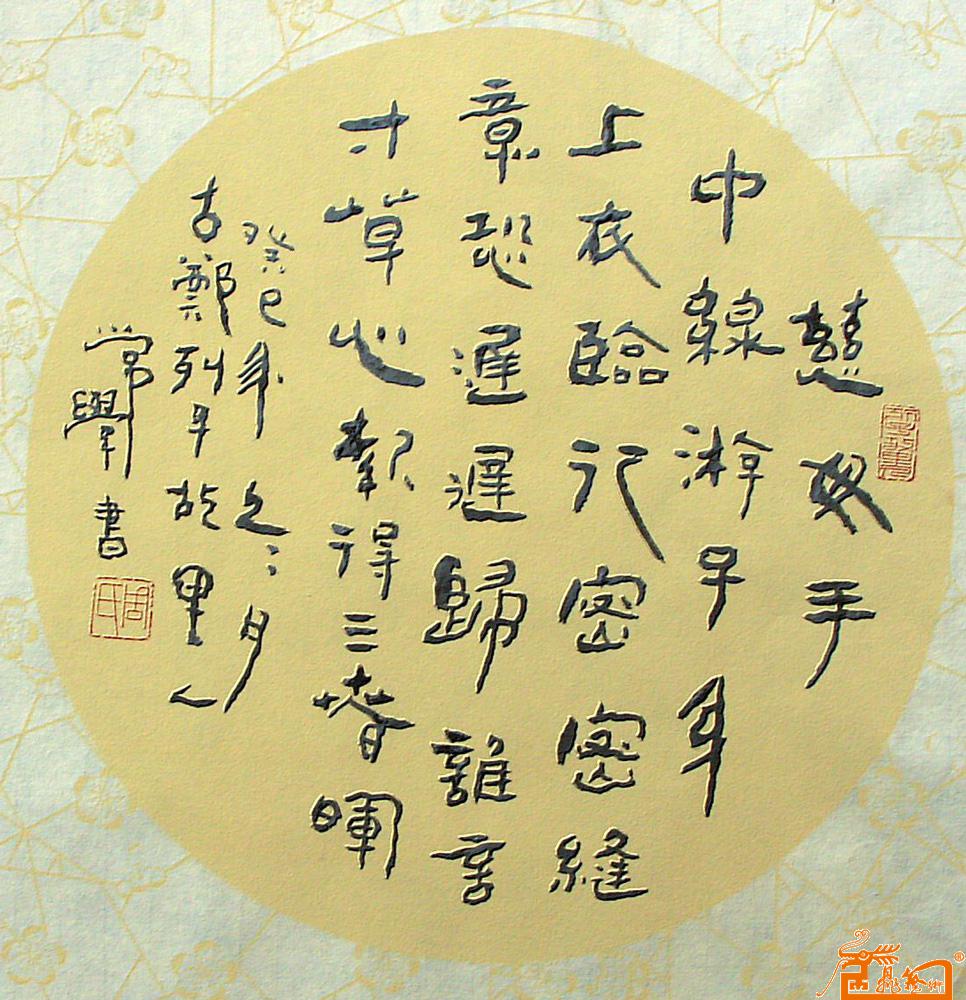 慈母手
中線游子身
上衣臨行密密縫
意恐遲遲歸誰言
寸草心報得三春暉
癸巳年之二月
古鄭列子故里人
常 書